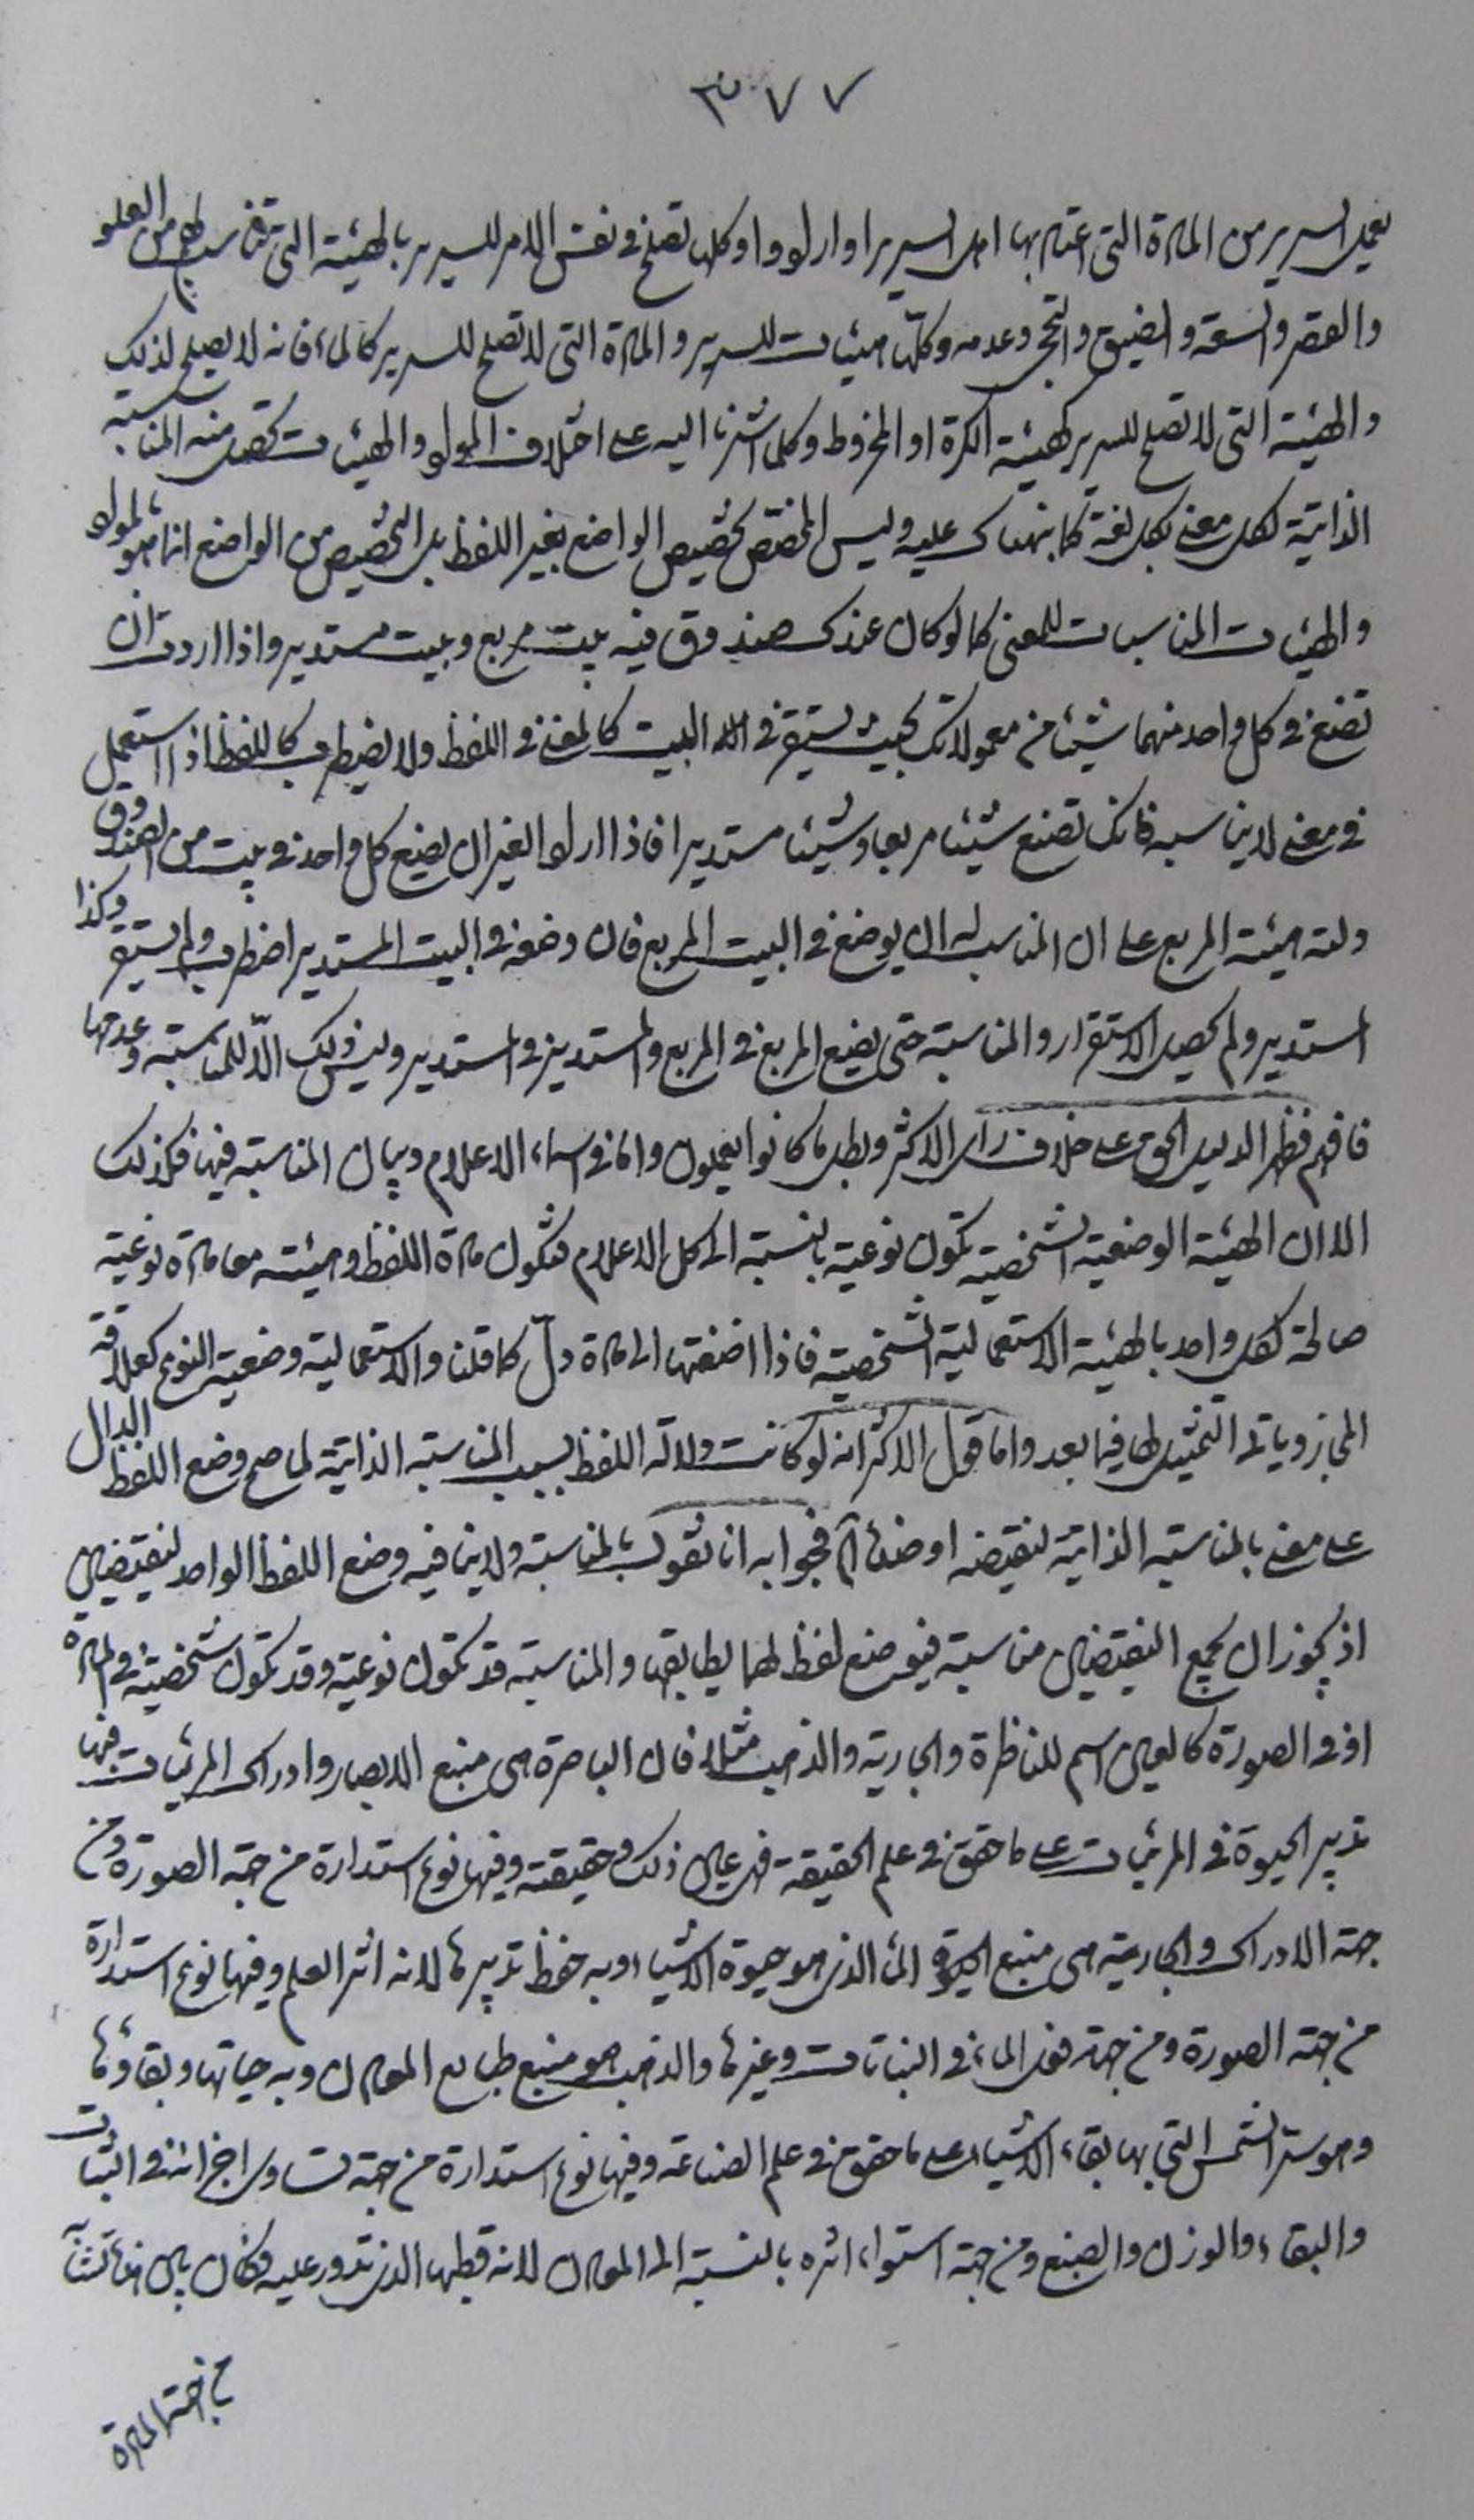 ٣٧٧
يعمل السرير من المادة التي اعتاد بها اهل السرير او ارادوا وكلها تصلح في نفس الامر للسرير بالهيئة التي تناسبها من العلو
والقصر والسعة والضيق والتحجر وعدمه وكلها هيئات للسرير والمادة التي لا تصلح للسرير كالماء فانه لا يصلح لذلك
والهيئة التي لا تصلح للسرير كهيئة الكرة او المخروط وكلما اشرنا اليه على اختلاف المواد والهيئات تحصل منه المناسبة
الذاتية لكل معنى بكل لغة كما نبهناك عليه وليس المختص تخصيص الواضع بغير اللفظ بل التخصيص من الواضع انما هو بالمواد
والهيئات المناسبات للمعنى كما لو كان عندك صندوق فيه بيت مربع وبيت مستدير واذا اردت ان
تضع في كل واحد منهما شيئا من معمولاتك بحيث يستقر في البيت كالمعنى في اللفظ ولا يضطرب كاللفظ اذا استعمل
في معنى لا يناسبه فانك تصنع شيئا مربعا وشيئا مستديرا فاذا اراد الغير ان يضع كل واحد في بيت من الصندوق
دلته هيئة المربع على ان المناسب له ان يوضع في البيت المربع فان وضعه في البيت المستدير اضطرب ولم يستقر وكذا
المستدير ولم يحصل الاستقرار والمناسبة حتى يضع المربع في المربع والمستدير في المستدير وليس ذلك الّا للمناسبة وعدمها
فافهم فظهر الدليل الحق على خلاف رأى الاكثر وبطل ما كانوا يعملون واما في اسماء الاعلام وبيان المناسبة فيها فكذلك
الا ان الهيئة الوضعية الشخصية تكون نوعية بالنسبة الى كل الاعلام فتكون مادة اللفظ وهيئته معا مادة نوعية
صالحة لكل واحد بالهيئة الاستعمالية الشخصية فاذا اضفتها الى المادة دلّ كما قلنا والاستعمالية وضعية النوع كعلاقة
المجاز ويأتي التمثيل لها فيما بعد واما قول الاكثر انه لو كانت دلالة اللفظ بسبب المناسبة الذاتية لما صح وضع اللفظ الدال
على معنى بالمناسبة الذاتية لنقيضه او ضده آه فجوابه انا نقول بالمناسبة ولا ينافيه وضع اللفظ الواحد لنقيضين
اذ يجوز ان يجمع النقيضين مناسبة فيوضع لفظ لهما يطابقها والمناسبة قد تكون نوعية وقد تكون شخصية في المادة
او في الصورة كالعين اسم للناظرة والجارية والذهب مثلا فان الباصرة هي منبع الابصار وادراك المرئيات فيها
تدبير الحيوة في المرئيات على ما حقق في علم الحقيقة فهي عين ذلك وحقيقته وفيها نوع استدارة من جهة الصورة ومن
جهة الادراك والجارية هي منبع الحيوة الماء الذي هو حيوة الاشياء وبه حفظ تدبيرها لانه اثر العلم وفيها نوع استدارة
من جهة الصورة ومن جهة فعل الماء في النباتات وغيرها والذهب هو منبع طبايع المعادن وبه حياتها وبقاؤها
وهو سر الشمس التي بها بقاء الاشياء على ما حقق في علم الصناعة وفيها نوع استدارة من جهة تساوي اجزائه في الثبات
والبقاء والوزن والصبغ ومن جهة استواء اثره بالنسبة الى المعادن لانه قطبها الذي تدور عليه فكان بين
من جهة المادة